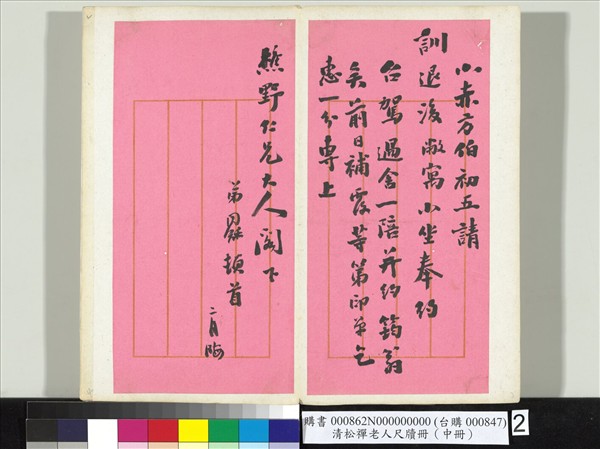 小赤方伯初五請
訓退後敝寓小坐奉約
台駕過舍一陪并約筠翁
矣前日補霞等第印單乞
惠一分專上
樵野仁兄大人閣下
弟龢頓首
二月晦
購書 000862N000000000 (台購 000847)
清松禪老人尺牘冊（中冊）
2